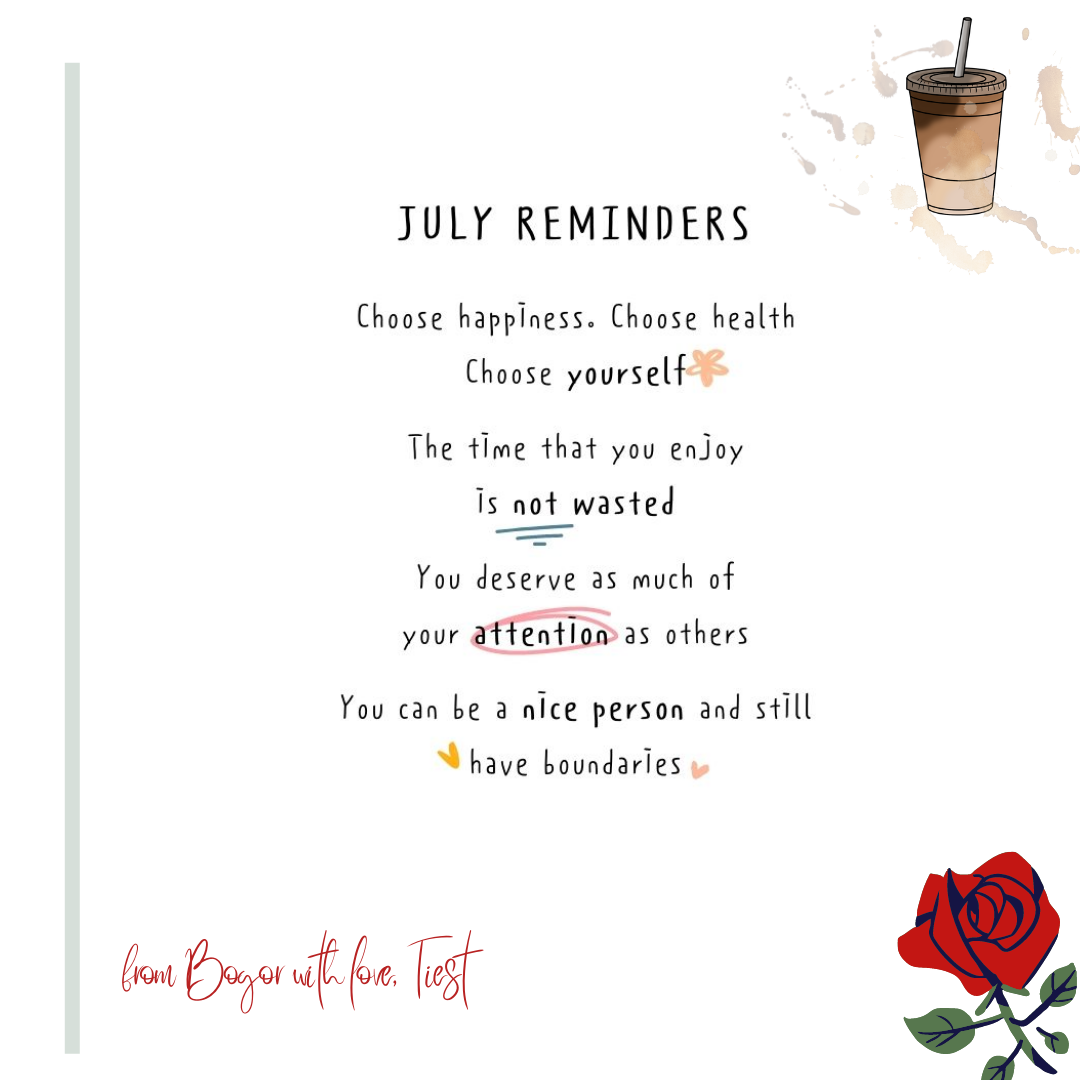 JULY REMINDERS
Choose happiness. Choose health
Choose yourself
The time that you enjoy
is not wasted
You deserve as much of
your attention as others
You can be a nice person and still
have boundaries
from Bogor with love, Tiest